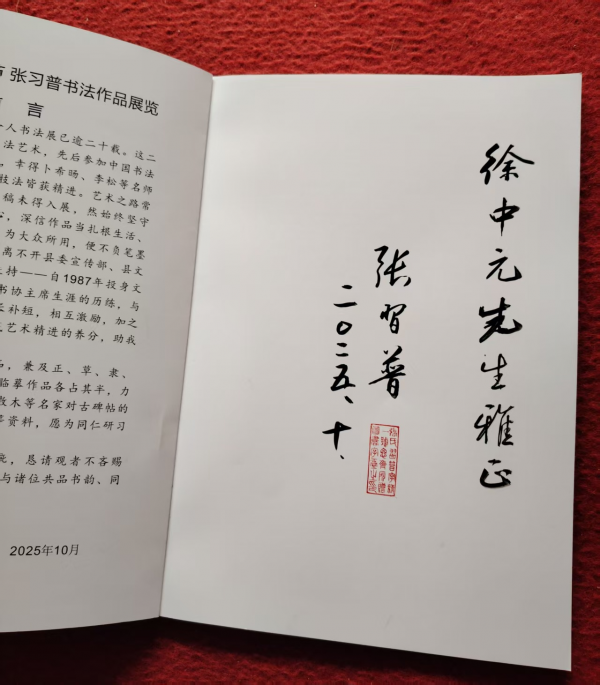 张习普书法作品展览
言
人书法展已逾二十载。这二
法艺术，先后参加中国书法
，幸得卜希旸、李松等名师
技法皆获精进。艺术之路常
稿未得入展，然始终坚守
，深信作品当扎根生活、
为大众所用，便不负笔墨
离不开县委宣传部、县文
持——自1987年投身文
书协主席生涯的历练，与
长补短，相互激励，加之
艺术精进的养分，助我
，兼及正、草、隶、
临摹作品各占其半，力
牧木等名家对古碑帖的
资料，愿为同仁研习
，恳请观者不吝赐
与诸位共品书韵、同
2025年10月
徐中元先生雅正
张习普
二〇二五、十、